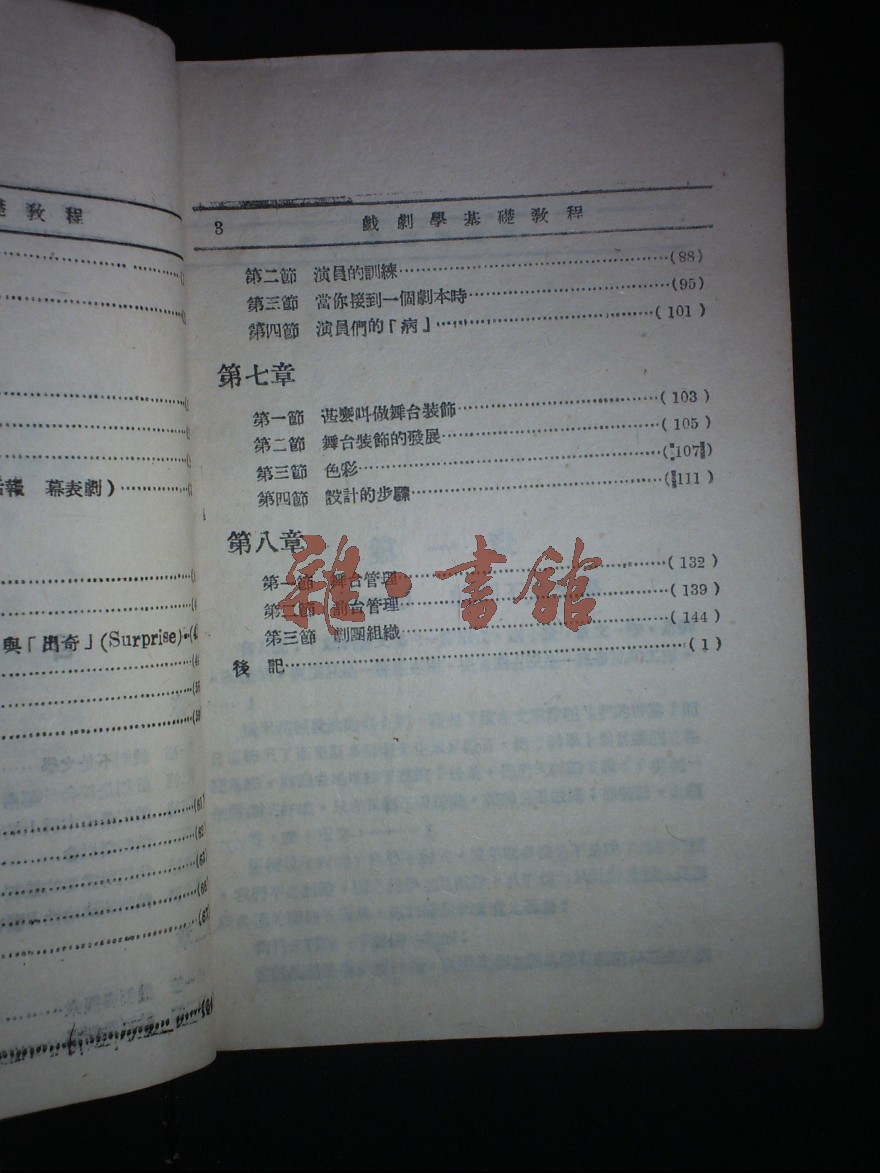 礎教程
活報　幕表劇）
與「出奇」(Surprise)
(61)
(62)
(63)
(66)
(67)
3　戲劇學基礎教程
第二節　演員的訓練…(88)
第三節　當你接到一個劇本時…(95)
第四節　演員們的「病」…(101)
第七章
第一節　甚麼叫做舞台裝飾…(103)
第二節　舞台裝飾的發展…(105)
第三節　色彩…(107)
第四節　設計的步驟…(111)
第八章
第一節　舞台管理…(132)
第二節　前台管理…(139)
第三節　劇團組織…(144)
後記…(1)
雜·書館